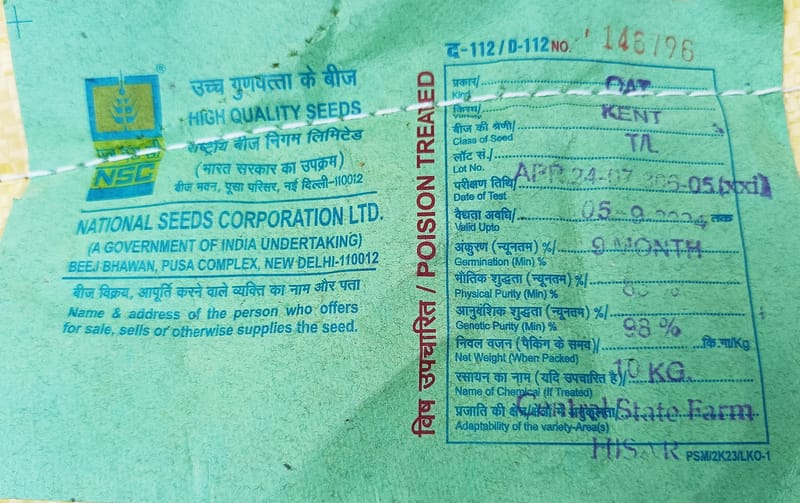 ®
उच्च गुणवत्ता के बीज
HIGH QUALITY SEEDS
राष्ट्रीय बीज निगम लिमिटेड
(भारत सरकार का उपक्रम)
बीज भवन, पूसा परिसर, नई दिल्ली-110012
NSC
NATIONAL SEEDS CORPORATION LTD.
(A GOVERNMENT OF INDIA UNDERTAKING)
BEEJ BHAWAN, PUSA COMPLEX, NEW DELHI-110012
बीज विक्रय, आपूर्ति करने वाले व्यक्ति का नाम और पता
Name & address of the person who offers
for sale, sells or otherwise supplies the seed.
विष उपचारित / POISION TREATED
द-112/D-112 NO. 146796
प्रकार/ OAT
Kind
किस्म/ KENT
Variety
बीज की श्रेणी/ T/L
Class of Seed
लॉट सं./
Lot No. APR 24-07
परीक्षण तिथि/
Date of Test
वैधता अवधि/ 05-9-2024 तक
Valid Upto
अंकुरण (न्यूनतम) %/ 9 MONTH
Germination (Min) %
भौतिक शुद्धता (न्यूनतम) %/
Physical Purity (Min) %
आनुवंशिक शुद्धता (न्यूनतम) %/ 98 %
Genetic Purity (Min) %
निवल वजन (पैकिंग के समय)/ कि.ग्रा/Kg
Net Weight (When Packed)
रसायन का नाम (यदि उपचारित है)/ 10 KG.
Name of Chemical (If Treated)
प्रजाति की Central State Farm
Adaptability of the variety-Area(s)
HISAR PSM/2K23/LKO-1